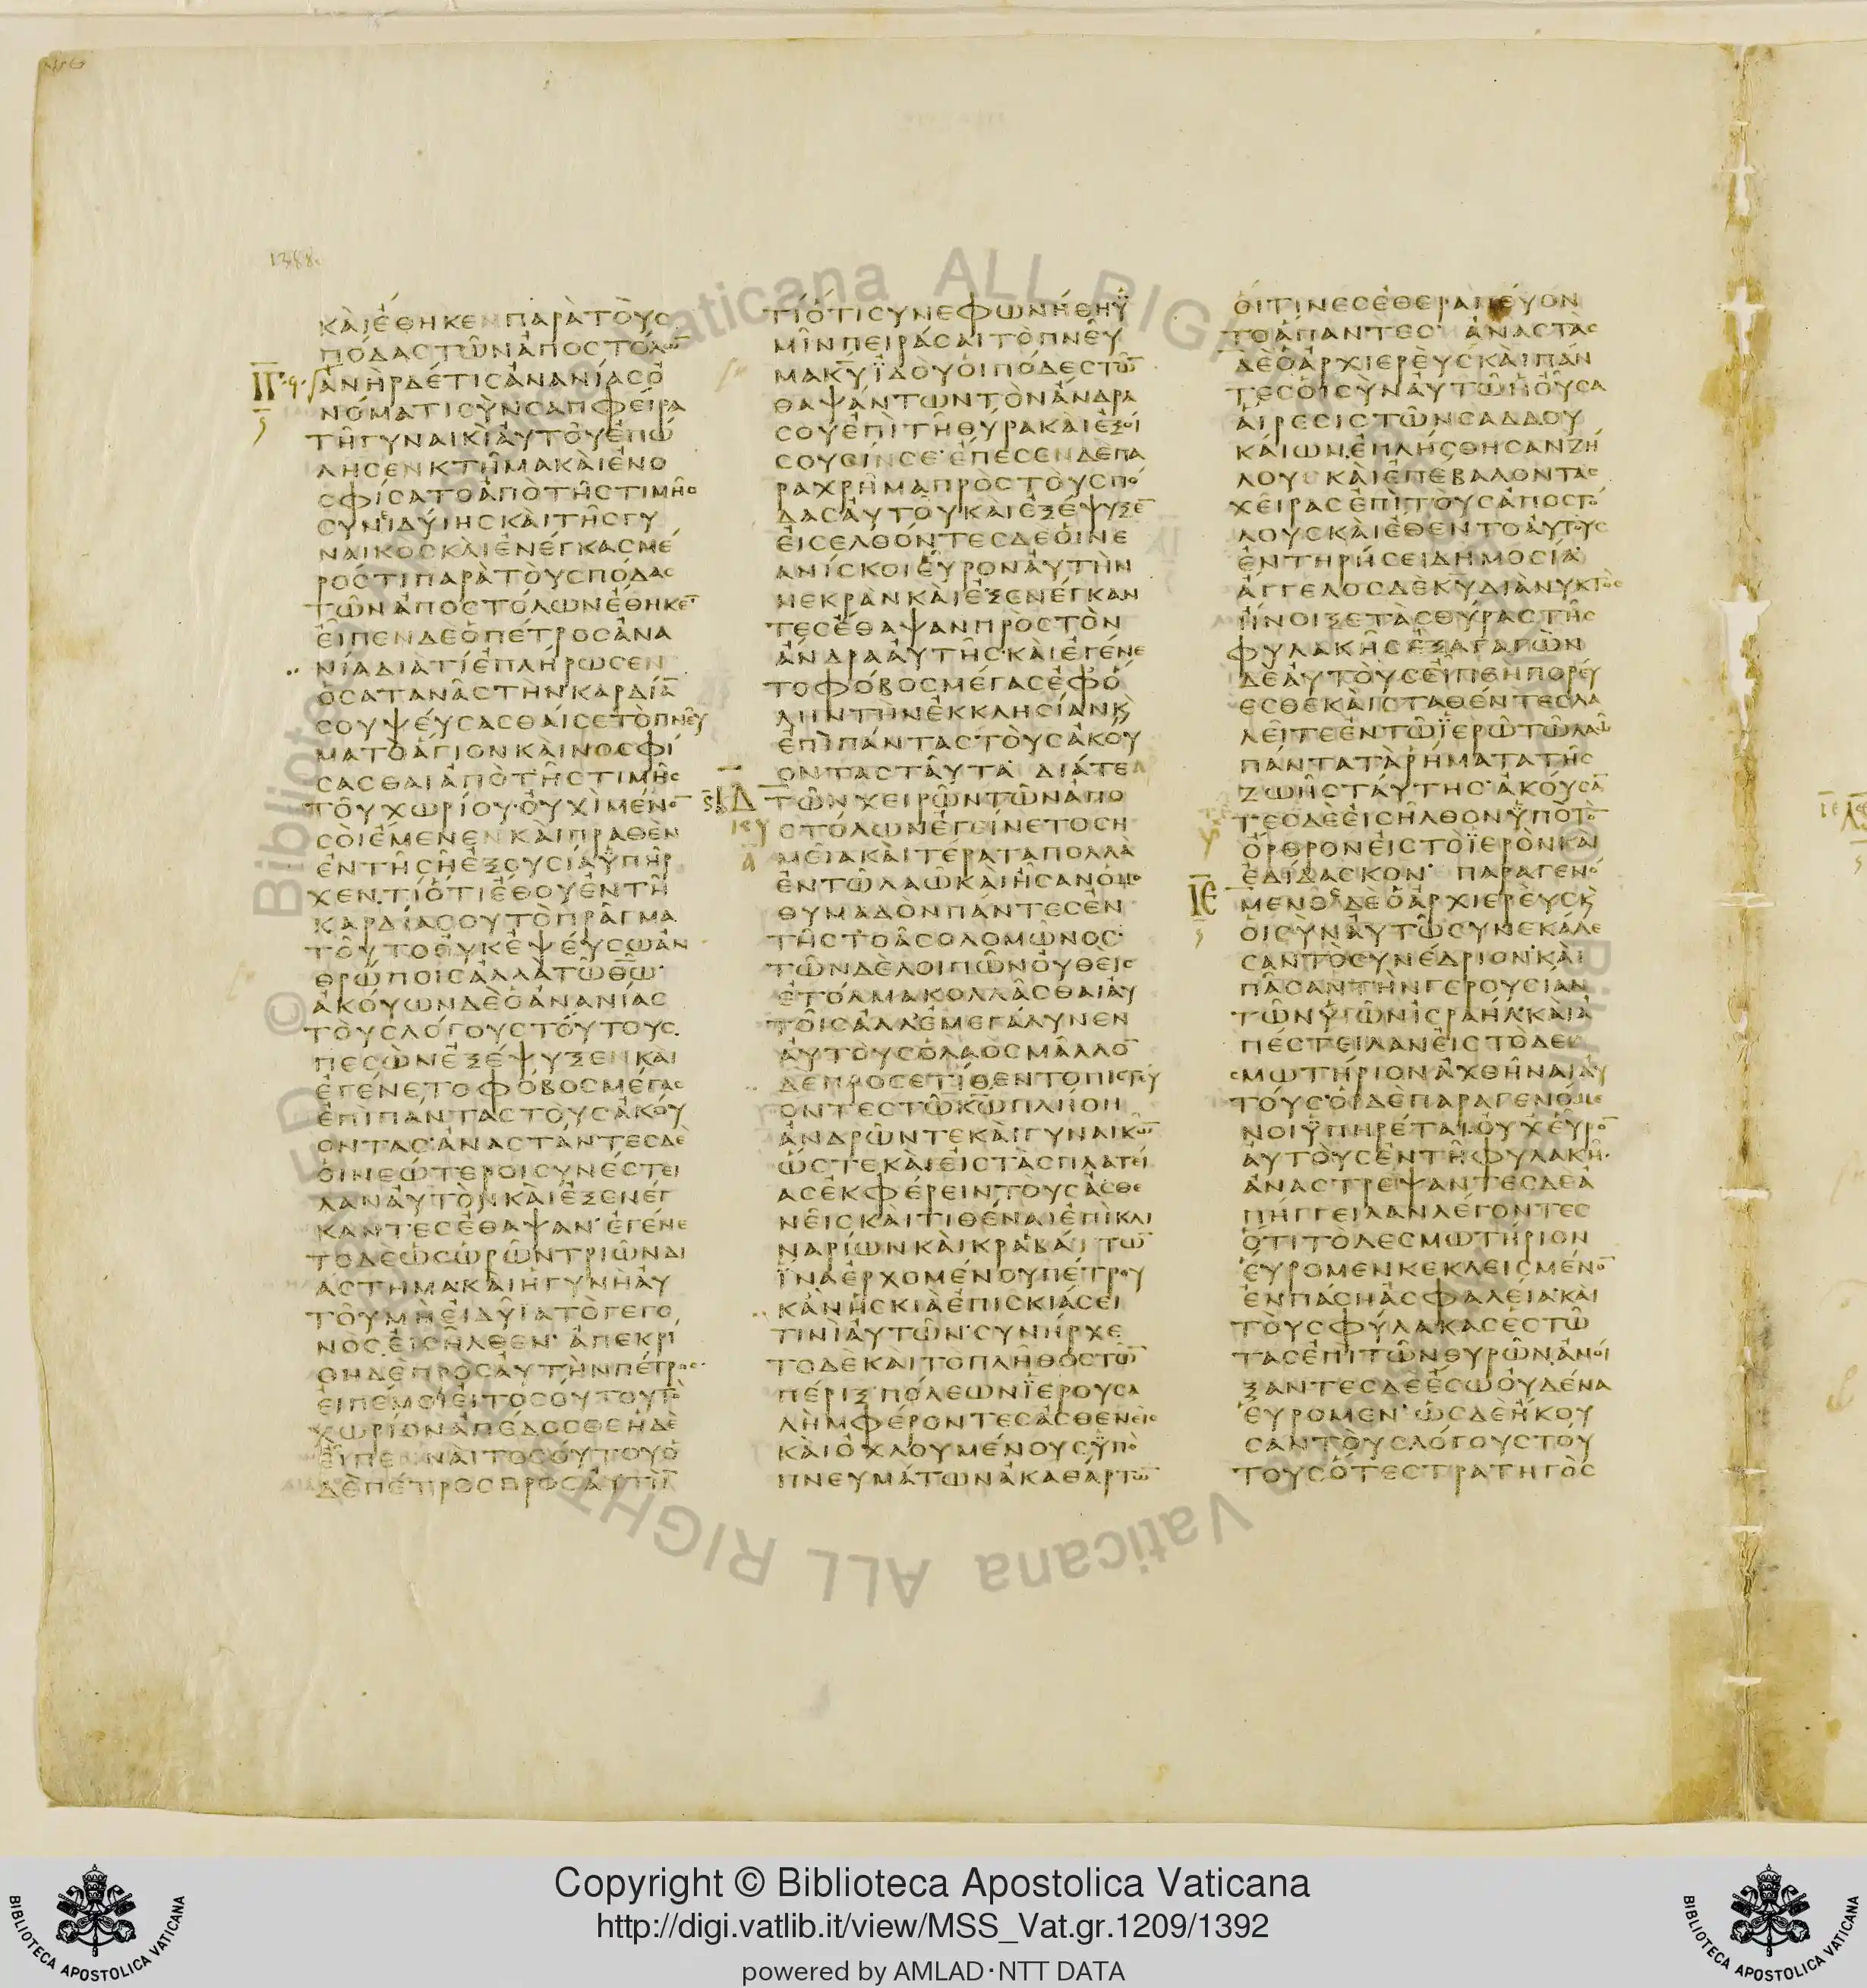 1388
ΚΑΙΕΘΗΚΕΝΠΑΡΑΤΟΥϹ
ΠΟΔΑϹΤΩΝΑΠΟϹΤΟΛΩ̅
ΑΝΗΡΔΕΤΙϹΑΝΑΝΙΑϹΟ
ΝΟΜΑΤΙϹΥΝϹΑΠΦΕΙΡΑ
ΤΗΓΥΝΑΙΚΙΑΥΤΟΥΕΠΩ
ΛΗϹΕΝΚΤΗΜΑΚΑΙΕΝΟ
ϹΦΙϹΑΤΟΑΠΟΤΗϹΤΙΜΗϹ
ϹΥΝΙΔΥΙΗϹΚΑΙΤΗϹΓΥ
ΝΑΙΚΟϹΚΑΙΕΝΕΓΚΑϹΜΕ
ΡΟϹΤΙΠΑΡΑΤΟΥϹΠΟΔΑϹ
ΤΩΝΑΠΟϹΤΟΛΩΝΕΘΗΚΕ̅
ΕΙΠΕΝΔΕΟΠΕΤΡΟϹΑΝΑ
ΝΙΑΔΙΑΤΙΕΠΛΗΡΩϹΕΝ
ΟϹΑΤΑΝΑϹΤΗΝΚΑΡΔΙΑ̅
ϹΟΥΨΕΥϹΑϹΘΑΙϹΕΤΟΠΝΕΥ
ΜΑΤΟΑΓΙΟΝΚΑΙΝΟϹΦΙ
ϹΑϹΘΑΙΑΠΟΤΗϹΤΙΜΗϹ
ΤΟΥΧΩΡΙΟΥΟΥΧΙΜΕΝΟ̅
ϹΟΙΕΜΕΝΕΝΚΑΙΠΡΑΘΕΝ
ΕΝΤΗϹΗΕΞΟΥϹΙΑΥΠΗΡ
ΧΕΝΤΙΟΤΙΕΘΟΥΕΝΤΗ
ΚΑΡΔΙΑϹΟΥΤΟΠΡΑΓΜΑ
ΤΟΥΤΟΟΥΚΕΨΕΥϹΩΑΝ
ΘΡΩΠΟΙϹΑΛΛΑΤΩΘ̅Ω̅
ΑΚΟΥΩΝΔΕΟΑΝΑΝΙΑϹ
ΤΟΥϹΛΟΓΟΥϹΤΟΥΤΟΥϹ
ΠΕϹΩΝΕΞΕΨΥΞΕΝΚΑΙ
ΕΓΕΝΕΤΟΦΟΒΟϹΜΕΓΑϹ
ΕΠΙΠΑΝΤΑϹΤΟΥϹΑΚΟΥ
ΟΝΤΑϹΑΝΑϹΤΑΝΤΕϹΔΕ
ΟΙΝΕΩΤΕΡΟΙϹΥΝΕϹΤΕΙ
ΛΑΝΑΥΤΟΝΚΑΙΕΞΕΝΕΓ
ΚΑΝΤΕϹΕΘΑΨΑΝΕΓΕΝΕ
ΤΟΔΕΩϹΩΡΩΝΤΡΙΩΝΔΙ
ΑϹΤΗΜΑΚΑΙΗΓΥΝΗΑΥ
ΤΟΥΜΗΕΙΔΥΙΑΤΟΓΕΓΟ
ΝΟϹΕΙϹΗΛΘΕΝΑΠΕΚΡΙ
ΘΗΔΕΠΡΟϹΑΥΤΗΝΠΕΤΡΟϹ
ΕΙΠΕΜΟΙΕΙΤΟϹΟΥΤΟΥΤΟ
ΧΩΡΙΟΝΑΠΕΔΟϹΘΕΗΔΕ
ΕΙΠΕΝΝΑΙΤΟϹΟΥΤΟΥΟ
ΔΕΠΕΤΡΟϹΠΡΟϹΑΥΤΗ̅
ΤΙΟΤΙϹΥΝΕΦΩΝΗΘΗΥ
ΜΙΝΠΕΙΡΑϹΑΙΤΟΠΝΕΥ
ΜΑΚ̅Υ̅ΙΔΟΥΟΙΠΟΔΕϹΤΩ̅
ΘΑΨΑΝΤΩΝΤΟΝΑΝΔΡΑ
ϹΟΥΕΠΙΤΗΘΥΡΑΚΑΙΕΞΟΙ
ϹΟΥϹΙΝϹΕΕΠΕϹΕΝΔΕΠΑ
ΡΑΧΡΗΜΑΠΡΟϹΤΟΥϹΠΟ
ΔΑϹΑΥΤΟΥΚΑΙΕΞΕΨΥΞΕ̅
ΕΙϹΕΛΘΟΝΤΕϹΔΕΟΙΝΕ
ΑΝΙϹΚΟΙΕΥΡΟΝΑΥΤΗΝ
ΝΕΚΡΑΝΚΑΙΕΞΕΝΕΓΚΑΝ
ΤΕϹΕΘΑΨΑΝΠΡΟϹΤΟΝ
ΑΝΔΡΑΑΥΤΗϹΚΑΙΕΓΕΝΕ
ΤΟΦΟΒΟϹΜΕΓΑϹΕΦΟ
ΛΗΝΤΗΝΕΚΚΛΗϹΙΑΝΚ
ΕΠΙΠΑΝΤΑϹΤΟΥϹΑΚΟΥ
ΟΝΤΑϹΤΑΥΤΑΔΙΑΤΕ
ΤΩΝΧΕΙΡΩΝΤΩΝΑΠΟ
ϹΤΟΛΩΝΕΓΕΙΝΕΤΟϹΗ
ΜΕΙΑΚΑΙΤΕΡΑΤΑΠΟΛΛΑ
ΕΝΤΩΛΑΩΚΑΙΗϹΑΝΟΜΟ
ΘΥΜΑΔΟΝΠΑΝΤΕϹΕΝ
ΤΗϹΤΟΑϹΟΛΟΜΩΝΟϹ
ΤΩΝΔΕΛΟΙΠΩΝΟΥΘΕΙϹ
ΕΤΟΛΜΑΚΟΛΛΑϹΘΑΙΑΥ
ΤΟΙϹΑΛΛΕΜΕΓΑΛΥΝΕΝ
ΑΥΤΟΥϹΟΛΑΟϹΜΑΛΛΟ̅
ΔΕΠΡΟϹΕΤΙΘΕΝΤΟΠΙϹΤΕΥ
ΟΝΤΕϹΤΩΚ̅Ω̅ΠΛΗΘΗ
ΑΝΔΡΩΝΤΕΚΑΙΓΥΝΑΙΚΩ̅
ΩϹΤΕΚΑΙΕΙϹΤΑϹΠΛΑΤΕΙ
ΑϹΕΚΦΕΡΕΙΝΤΟΥϹΑϹΘΕ
ΝΕΙϹΚΑΙΤΙΘΕΝΑΙΕΠΙΚΛΙ
ΝΑΡΙΩΝΚΑΙΚΡΑΒΑΤΤΩ̅
ΙΝΑΕΡΧΟΜΕΝΟΥΠΕΤΡΟΥ
ΚΑΝΗϹΚΙΑΕΠΙϹΚΙΑϹΕΙ
ΤΙΝΙΑΥΤΩΝϹΥΝΗΡΧΕ
ΤΟΔΕΚΑΙΤΟΠΛΗΘΟϹΤΩ̅
ΠΕΡΙΞΠΟΛΕΩΝΙΕΡΟΥϹΑ
ΛΗΜΦΕΡΟΝΤΕϹΑϹΘΕΝΕΙϹ
ΚΑΙΟΧΛΟΥΜΕΝΟΥϹΥΠΟ
ΠΝΕΥΜΑΤΩΝΑΚΑΘΑΡΤΩ̅
ΟΙΤΙΝΕϹΕΘΕΡΑΠΕΥΟΝ
ΤΟΑΠΑΝΤΕϹΑΝΑϹΤΑϹ
ΔΕΟΑΡΧΙΕΡΕΥϹΚΑΙΠΑΝ
ΤΕϹΟΙϹΥΝΑΥΤΩΗΟΥϹΑ
ΑΙΡΕϹΙϹΤΩΝϹΑΔΔΟΥ
ΚΑΙΩΝΕΠΛΗϹΘΗϹΑΝΖΗ
ΛΟΥϹΚΑΙΕΠΕΒΑΛΟΝΤΑϹ
ΧΕΙΡΑϹΕΠΙΤΟΥϹΑΠΟϹΤΟ
ΛΟΥϹΚΑΙΕΘΕΝΤΟΑΥΤΟΥϹ
ΕΝΤΗΡΗϹΕΙΔΗΜΟϹΙΑ
ΑΓΓΕΛΟϹΔΕΚ̅Υ̅ΔΙΑΝΥΚΤΟϹ
ΗΝΟΙΞΕΤΑϹΘΥΡΑϹΤΗϹ
ΦΥΛΑΚΗϹΕΞΑΓΑΓΩΝ
ΔΕΑΥΤΟΥϹΕΙΠΕΝΠΟΡΕΥ
ΕϹΘΕΚΑΙϹΤΑΘΕΝΤΕϹΛΑ
ΛΕΙΤΕΕΝΤΩΙΕΡΩΤΩΛΑΩ
ΠΑΝΤΑΤΑΡΗΜΑΤΑΤΗϹ
ΖΩΗϹΤΑΥΤΗϹΑΚΟΥϹΑ̅
ΤΕϹΔΕΕΙϹΗΛΘΟΝΥΠΟΤΟ̅
ΟΡΘΡΟΝΕΙϹΤΟΙΕΡΟΝΚΑΙ
ΕΔΙΔΑϹΚΟΝΠΑΡΑΓΕΝΟ
ΜΕΝΟϹΔΕΟΑΡΧΙΕΡΕΥϹΚ
ΟΙϹΥΝΑΥΤΩϹΥΝΕΚΑΛΕ
ϹΑΝΤΟϹΥΝΕΔΡΙΟΝΚΑΙ
ΠΑϹΑΝΤΗΝΓΕΡΟΥϹΙΑΝ
ΤΩΝΥΙΩΝΙϹΡΑΗΛΚΑΙΑ
ΠΕϹΤΕΙΛΑΝΕΙϹΤΟΔΕ
ϹΜΩΤΗΡΙΟΝΑΧΘΗΝΑΙΑΥ
ΤΟΥϹΟΙΔΕΠΑΡΑΓΕΝΟΜΕ
ΝΟΙΥΠΗΡΕΤΑΙΟΥΧΕΥΡΟ̅
ΑΥΤΟΥϹΕΝΤΗΦΥΛΑΚΗ
ΑΝΑϹΤΡΕΨΑΝΤΕϹΔΕΑ
ΠΗΓΓΕΙΛΑΝΛΕΓΟΝΤΕϹ
ΟΤΙΤΟΔΕϹΜΩΤΗΡΙΟΝ
ΕΥΡΟΜΕΝΚΕΚΛΕΙϹΜΕΝΟ̅
ΕΝΠΑϹΗΑϹΦΑΛΕΙΑΚΑΙ
ΤΟΥϹΦΥΛΑΚΑϹΕϹΤΩ
ΤΑϹΕΠΙΤΩΝΘΥΡΩΝΑΝΟΙ
ΞΑΝΤΕϹΔΕΕϹΩΟΥΔΕΝΑ
ΕΥΡΟΜΕΝΩϹΔΕΗΚΟΥ
ϹΑΝΤΟΥϹΛΟΓΟΥϹΤΟΥ
ΤΟΥϹΟΤΕϹΤΡΑΤΗΓΟϹ
Copyright © Biblioteca Apostolica Vaticana
http://digi.vatlib.it/view/MSS_Vat.gr.1209/1392
powered by AMLAD·NTT DATA
BIBLIOTECA APOSTOLICA VATICANA
BIBLIOTECA APOSTOLICA VATICANA